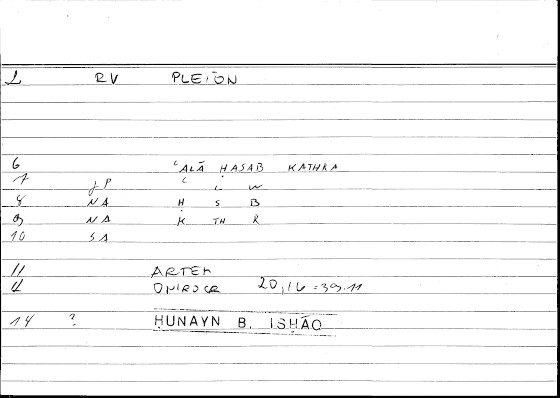 1 RV PLEIŌN
6 ʿALĀ ḤASAB KATHRA
7 jP ʿ L W
8 NA Ḥ S B
9 NA K TH R
10 SA
11 ARTEM
12 ONIROCR 20,16 = 39.11
14 ? HUNAYN B. ISHĀQ